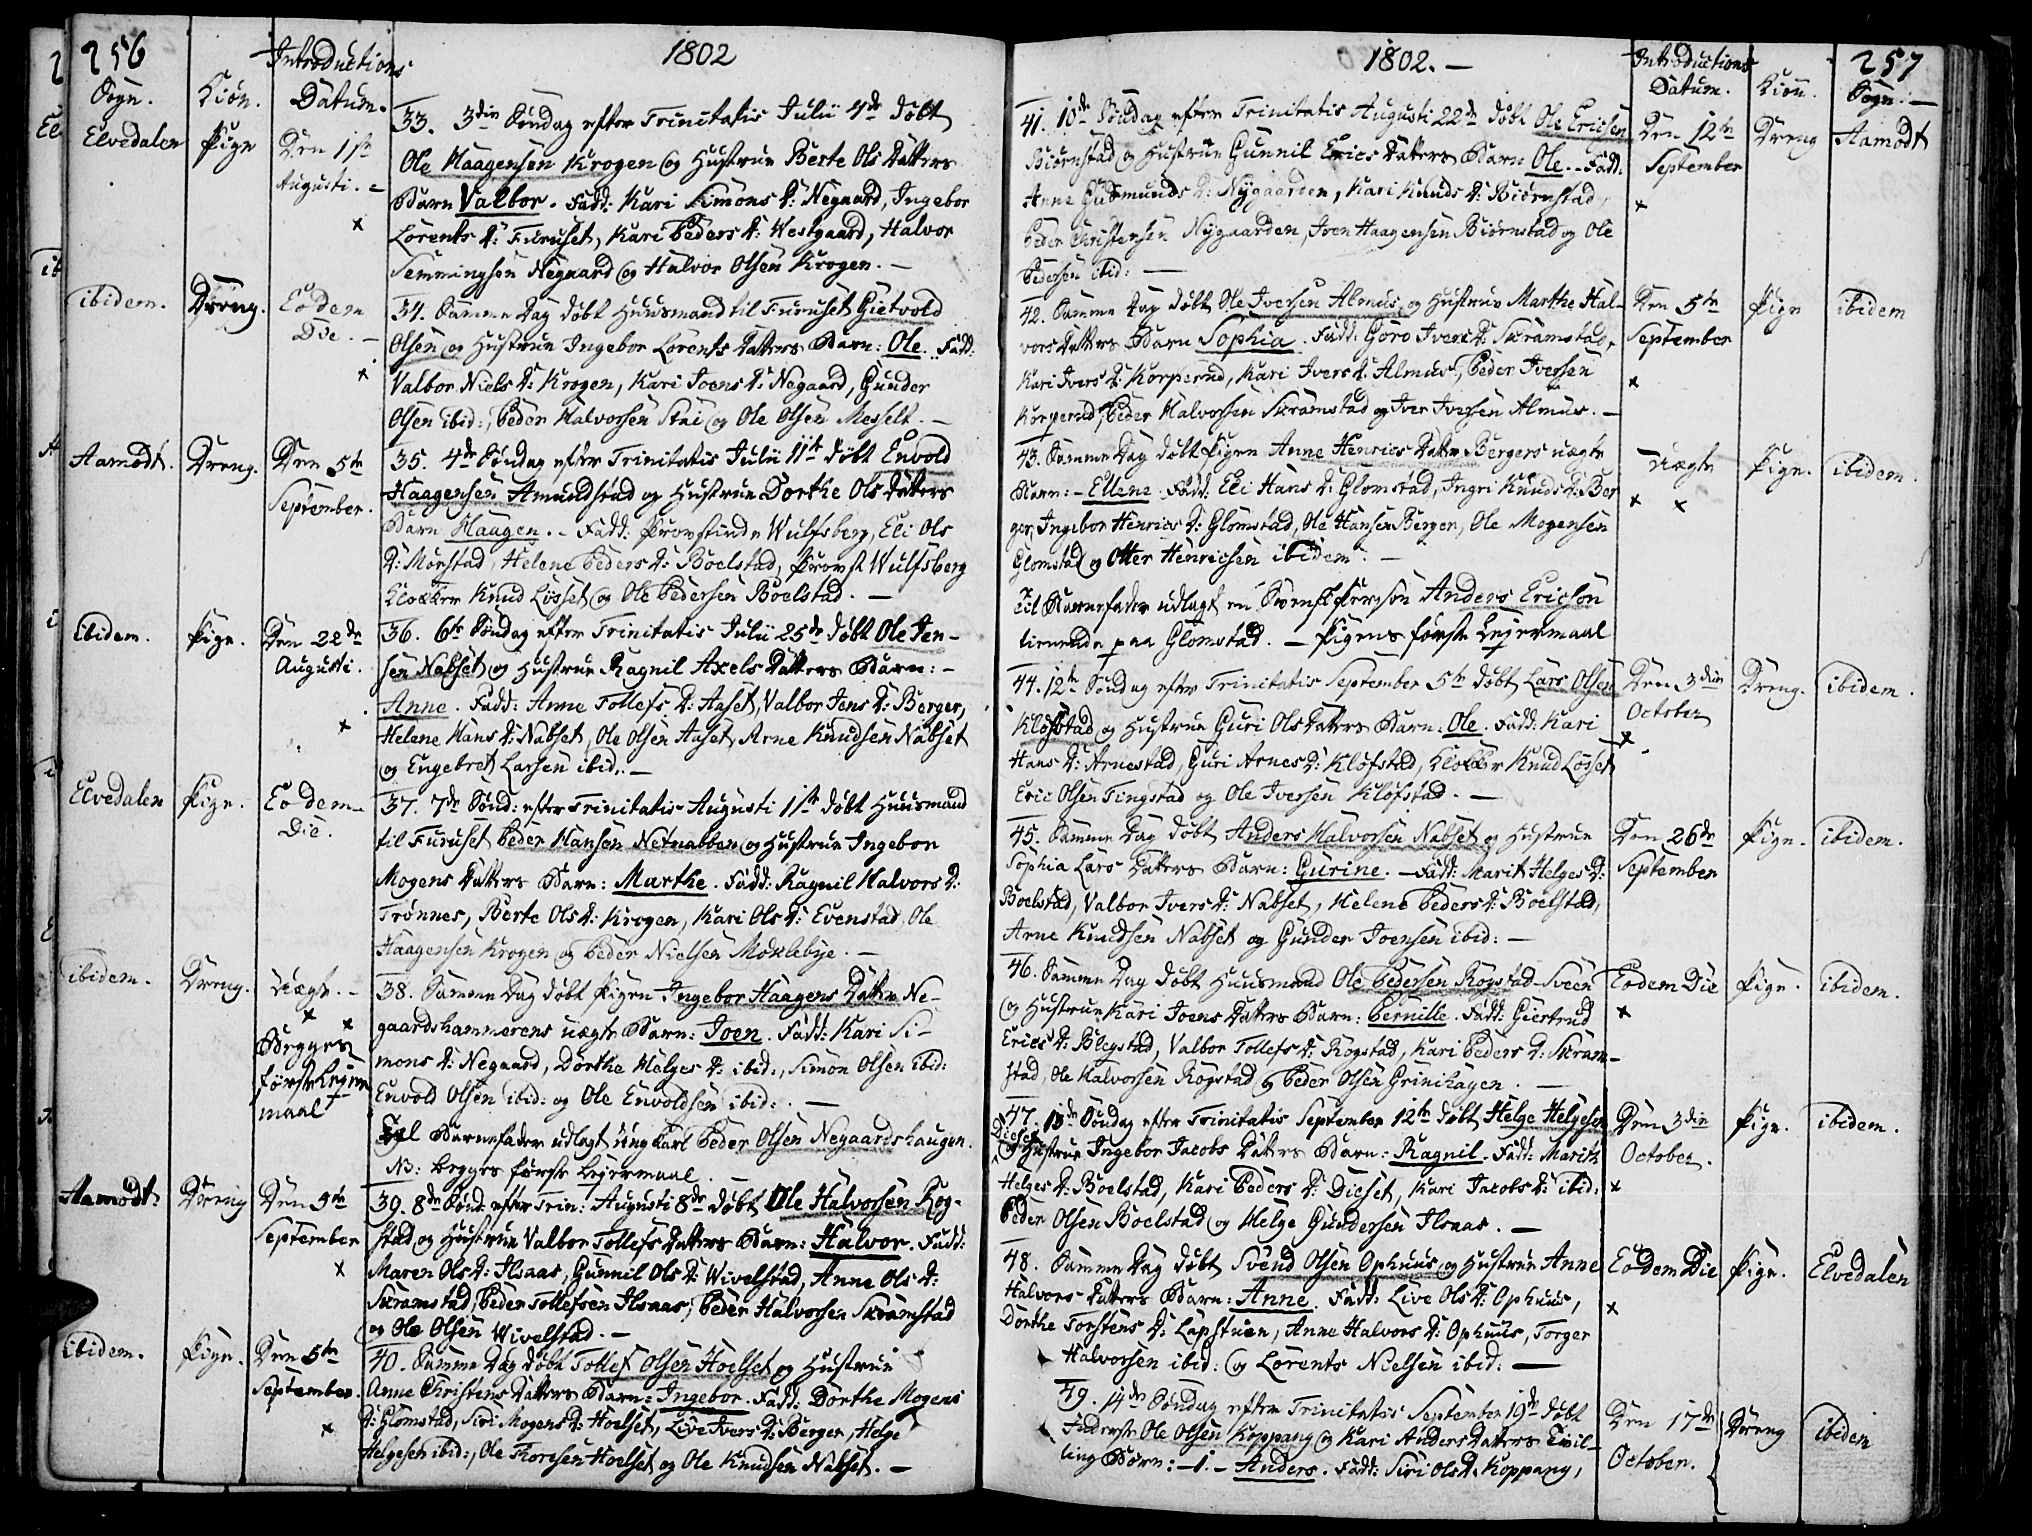 256
1802
Sogn.
Kiön.
Introductions
Datum.
Elvedalen
Pige
Den 1ste
Augusti.
33. 3die Söndag efter Trinitatis Julii 4de döbt
Ole Haagensen Krogen og Hustrue Berte Ols Datters
Barn Valbor. Fadd: Kari Simons D: Negaard, Ingebor
Lorents D: Furuset, Kari Peders D: Westgaard, Halvor
Semmingsen Negaard og Halvor Olsen Krogen.
ibidem.
Dreng.
Eodem
Die.
34. Samme Dag döbt Huusmand til Furuset Gietvold
Olsen og Hustrue Ingebor Lorents Datters Barn: Ole. Fadd:
Valbor Niels D: Krogen, Kari Joens D: Negaard, Gunder
Olsen ibid:, Peder Halvorsen Stai og Ole Olsen Messelt.
Aamodt.
Dreng.
Den 5te
September.
35. 4de Söndag efter Trinitatis Julii 11te döbt Envold
Haagensen Amundstad og Hustrue Dorthe Ols Datters
Barn Haagen. Fadd: Provstinde Wulfsberg, Eli Ols
D: Morstad, Helene Peders D: Boelstad, Provst Wulfsberg
Klokker Knud Lösset og Ole Pedersen Boelstad.
ibidem.
Pige.
Den 22de
Augusti.
36. 6te Söndag efter Trinitatis Julii 25de döbt Ole Jen-
sen Nabset og Hustrue Ragnil Axels Datters Barn:
Anne. Fadd: Anne Tollefs D: Aaset, Valbor Jens D: Berger,
Helene Hans D: Nabset, Ole Olsen Aaset, Arne Knudsen Nabset
og Engebret Larsen ibid:
Elvedalen
Pige.
Eodem
Die.
37. 7de Sönd: efter Trinitatis Augusti 1ste döbt Huusmand
til Furuset Peder Hansen Netnabben og Hustrue Ingebor
Mogens Datters Barn: Marthe. Fadd: Ragnil Halvors D:
Trönnes, Berte Ols D: Krogen, Kari Ols D: Evenstad, Ole
Haagensen Krogen og Peder Nielsen Moklebye.
ibidem.
Dreng.
Uægte.
Begges
förste Leyer
maal
38. Samme Dag döbt Pigen Ingebor Haagens Datter Ne-
gaardshammerens uægte Barn: Joen. Fadd: Kari Si-
mons D: Negaard, Dorthe Helges D: ibid:, Simon Olsen ibid:
Envold Olsen ibid: og Ole Envoldsen ibid:
Til Barnefader udlagt ung Karl Peder Olsen Negaardshaugen.
NB: begges förste Lejermaal.
Aamodt.
Dreng
Den 5te
September
39. 8de Sönd: efter Trin: Augusti 8de döbt Ole Halvorsen Rog-
stad og Hustrue Valbor Tollefs Datters Barn: Halvor. Fadd:
Maren Ols D: Ilsaas, Gunnil Ols D: Wivelstad, Anne Ols D:
Skramstad, Peder Tollefsen Ilsaas, Peder Halvorsen Skramstad
og Ole Olsen Wivelstad.
ibidem.
Pige.
Den 5te
September.
40. Samme Dag döbt Tollef Olsen Hoelset og Hustrue
Anne Christens Datters Barn: Ingebor. Fadd: Dorthe Mogens
D: Glomstad, Siri Mogens D: Hoelset, Live Ivers D: Berger, Helge
Helgesen ibid:, Ole Thoresen Hoelset og Ole Knudsen Nabset.
1802.
Introductions
Datum.
Kiön.
257
Sogn:
41. 10de Söndag efter Trinitatis Augusti 22de döbt Ole Ericsen
Biörnstad og Hustrue Gunnil Erics Datters Barn Ole. Fadd:
Anne Gudmunds D: Nygaarden, Kari Knuds D: Biörnstad,
Peder Christensen Nygaarden, Joen Haagensen Biörnstad og Ole
Pedersen ibid:
Den 12te
September
Dreng
Aamodt
42. Samme Dag döbt Ole Iversen Almus og Hustrue Marthe Hal-
vors Datters Barn Sophia. Fadd: Goro Ivers D: Skramstad,
Kari Ivers D: Korperud, Kari Ivers D: Almus, Peder Iversen
Korperud, Peder Halvorsen Skramstad og Iver Iversen Almus.
Den 5te
September
Pige
ibidem
43. Samme Dag döbt Pigen Anne Henrics Datter Bergers uægte
Barn: Ellene. Fadd: Eli Hans D: Glomstad, Ingri Knuds D: Ber
ger, Ingebor Henrics D: Glomstad, Ole Hansen Berger, Ole Mogensen
Glomstad og Otter Henricsen ibidem.
Til Barnefader udlagt en Svensk Person Anders Ericson
tienende paa Glomstad. Pigens förste Lejermaal
Uægte
Pige.
ibidem.
44. 12te Söndag efter Trinitatis September 5te döbt Lars Olsen
Klöfstad og Hustrue Guri Ols Datters Barn: Ole. Fadd: Kari
Hans D: Arnestad, Guri Arnes D: Klöfstad, Klokker Knud Lösset
Eric Olsen Tingstad og Ole Iversen Klöfstad.
Den 3die
October
Dreng.
ibidem.
45. Samme Dag döbt Anders Halvorsen Nabset og Hustrue
Sophia Lars Datters Barn: Gurine. Fadd: Marit Helges D:
Boelstad, Valbor Ivers D: Nabset, Helene Peders D: Boelstad,
Arne Knudsen Nabset og Gunder Joensen ibid:
Den 26de
September
Pige.
ibidem.
46. Samme Dag döbt Huusmand Ole Pedersen Rogstad-Sveen
og Hustrue Kari Joens Datters Barn: Pernille. Fadd: Giertrud
Erics D: Blegstad, Valbor Tollefs D: Rogstad, Kari Peders D: Skram-
stad, Ole Halvorsen Rogstad og Peder Olsen Grinihagen.
Eodem Die
Pige.
ibidem.
47. 13de Söndag efter Trinitatis September 12te döbt Helge Helgesen
Dieset
og Hustrue Ingebor Jacobs Datters Barn: Ragnil. Fadd: Marith
Helges D: Boelstad, Kari Peders D: Dieset, Kari Jacobs D: ibid:
Peder Olsen Boelstad og Helge Gundersen Ilsaas.
Den 3die
October.
Pige.
ibidem.
48. Samme Dag döbt Svend Olsen Ophuus og Hustrue Anne
Halvors Datters Barn: Anne. Fadd: Live Ols D: Ophuus,
Dorthe Torstens D: Lapstuen, Anne Halvors D: Ophuus, Torger
Halvorsen ibid: og Lorents Nielsen ibid:
Eodem Die
Pige.
Elvedalen
49. 14de Söndag efter Trinitatis September 19de döbt
Inderste Ole Olsen Koppang og Kari Anders Datters Tvil-
ling Börn: 1. Anders. Fadd: Siri Ols D: Koppang,
Den 17de
October.
Dreng
ibidem